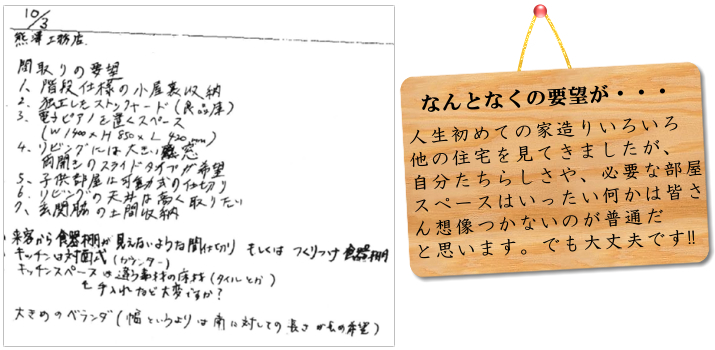 10/3
熊澤工務店
間取りの要望
1、階段仕様の小屋裏収納
2、独立したストックヤード(食品庫)
3、電子ピアノを置くスペース
(W1400×H850×L420mm)
4、リビングには大きい窓
両開きのスライドタイプが希望
5、子供部屋は可動式の仕切り
6、リビングの天井は高く取りたい
7、玄関脇の土間収納
来客から食器棚が見えないような間仕切り もしくは つくりつけ食器棚
キッチンは対面式(カウンター)
キッチンスペースは違う素材の床材(タイルとか)
を手入れなど大変ですか?
大きめのベランダ(幅というより は南に対しての長さが長め希望)
なんとなくの要望が・・・
人生初めての家造りいろいろ
他の住宅を見てきましたが、
自分たちらしさや、必要な部屋
スペースはいったい何かは皆さ
ん想像つかないのが普通だ
と思います。でも大丈夫です!!